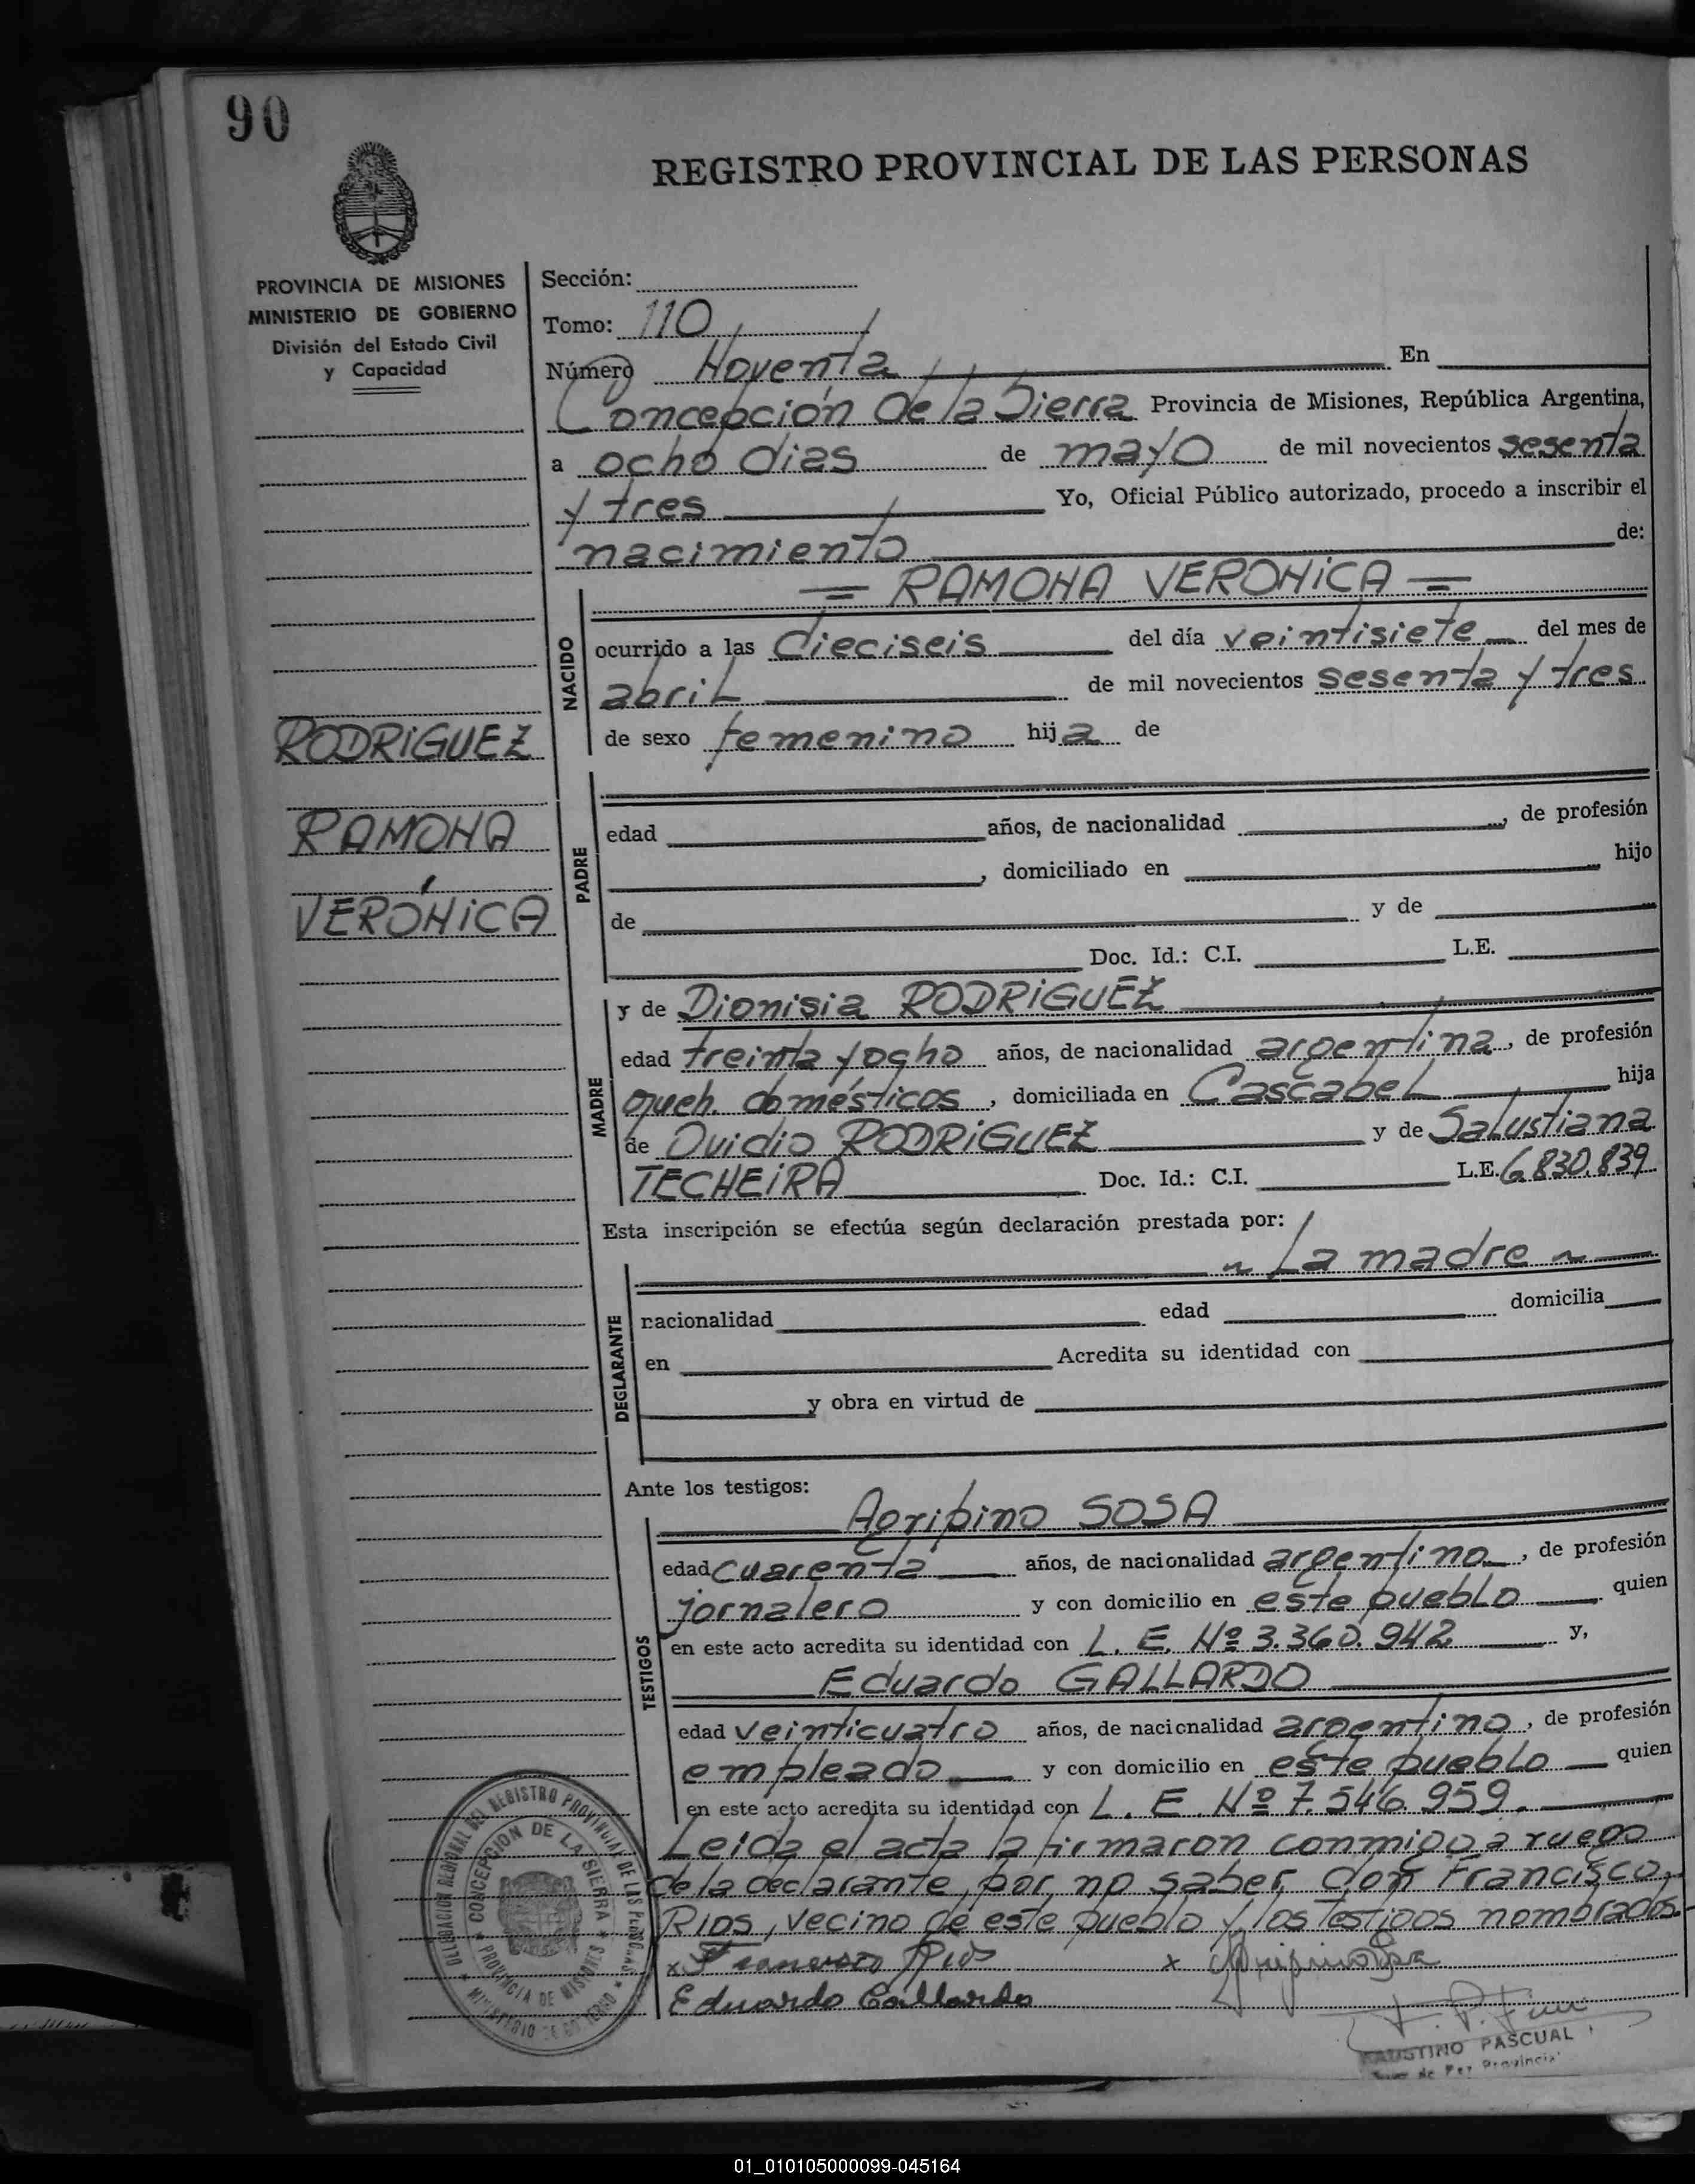 90
REGISTRO PROVINCIAL DE LAS PERSONAS
PROVINCIA DE MISIONES
MINISTERIO DE GOBIERNO
División del Estado Civil
y Capacidad
Sección:
Tomo: 110
Número Noventa En
Concepción de la Sierra Provincia de Misiones, República Argentina,
a ocho dias de mayo de mil novecientos sesenta
y tres Yo, Oficial Público autorizado, procedo a inscribir el
nacimiento de:
= RAMONA VERONICA =
NACIDO
ocurrido a las dieciseis del día veintisiete del mes de
abril de mil novecientos sesenta y tres
de sexo femenino hija de
RODRIGUEZ
RAMONA
VERÓNICA
PADRE
edad años, de nacionalidad , de profesión
, domiciliado en hijo
de y de
Doc. Id.: C.I. L.E.
MADRE
y de Dionisia RODRIGUEZ
edad treinta y ocho años, de nacionalidad argentina, de profesión
queh. domésticos, domiciliada en Cascabel hija
de Ovidio RODRIGUEZ y de Salustiana
TECHEIRA Doc. Id.: C.I. L.E. 6.830.839
Esta inscripción se efectúa según declaración prestada por:
~ La madre ~
DECLARANTE
nacionalidad edad domicilia
en Acredita su identidad con
y obra en virtud de
Ante los testigos:
TESTIGOS
Agripino SOSA
edad cuarenta años, de nacionalidad argentino, de profesión
jornalero y con domicilio en este pueblo quien
en este acto acredita su identidad con L. E. Nº 3.360.942 y,
Eduardo GALLARDO
edad veinticuatro años, de nacionalidad argentino, de profesión
empleado y con domicilio en este pueblo quien
en este acto acredita su identidad con L. E. Nº 7.546.959.
Leida el acta la firmaron conmigo a ruego
de la declarante, por no saber, don Francisco
Rios, vecino de este pueblo y los testigos nombrados.
x Francisco Rios x Agripino Sosa
Eduardo Gallardo
FAUSTINO PASCUAL
DELEGACION REGIONAL DEL REGISTRO PROVINCIAL DE LAS PERSONAS
CONCEPCION DE LA SIERRA
PROVINCIA DE MISIONES
MINISTERIO DE GOBIERNO
01_010105000099-045164